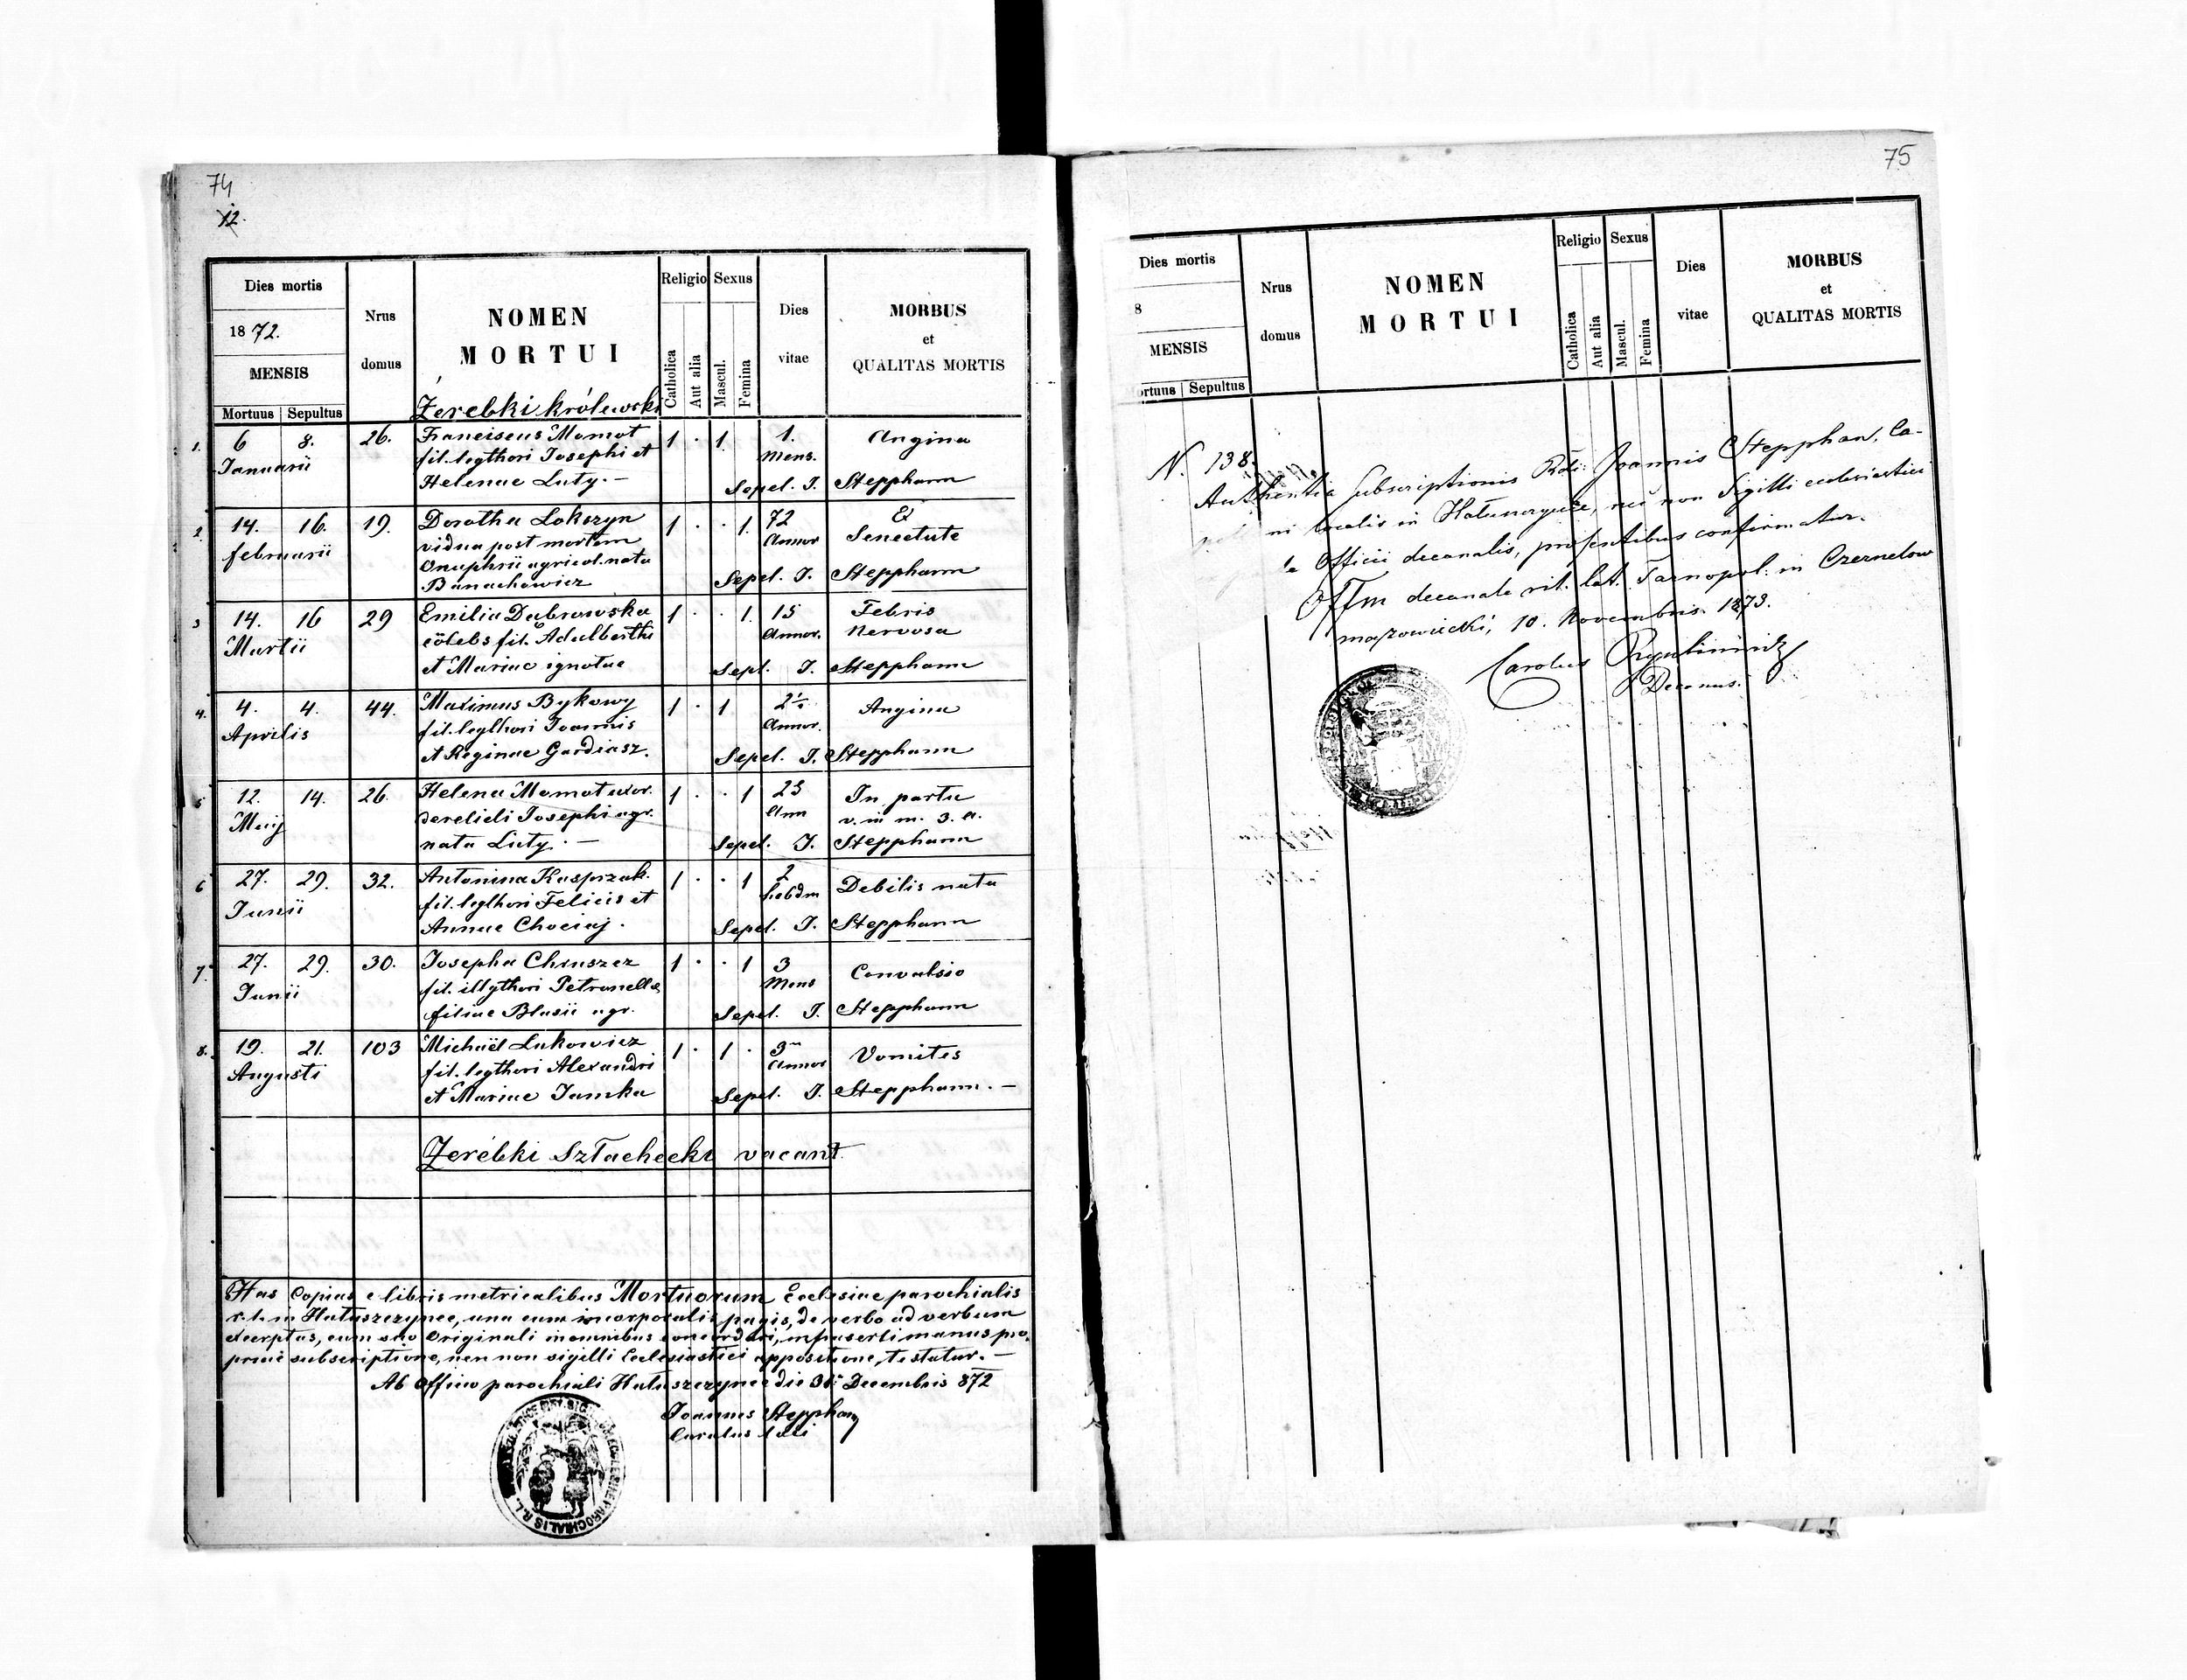 74
12.
Dies mortis
1872.
MENSIS
Mortuus | Sepultus
Nrus
domus
NOMEN
MORTUI
Religio
Catholica
Aut alia
Sexus
Mascul.
Femina
Dies
vitae
MORBUS
et
QUALITAS MORTIS
Żerebki królewski
1. 6 8. 26. Franciscus Momot 1 · 1 1. Angina
Januarii fil. legthori Josephi et Mens.
Helenae Luty. — Sepel. J. Stepphann
2. 14. 16. 19. Dorothea Lokszyn 1 · · 1. 72 E
februarii vidua post mortem Annor Senectute
Onuphrii agricol. nata
Banachowicz Sepel. J. Stepphann
3 14. 16 29 Emilia Dubrowska 1 · · 1. 15 Febris
Martii cölebs fil. Adalberthi Annor. Nervosa
et Mariae ignotae Sepl. J. Stepphann
4. 4. 4. 44. Maximus Bykowy 1 · 1 Angina
Aprilis fil. legthori Joannis Annor.
et Reginae Gardiasz. Sepel. J. Stepphann
5 12. 14. 26. Helena Momot uxor. 1 · · 1 23 In partu
Maij derelicti Josephi agr. Ann v. in m. 3. a.
nata Luty. — Sepel. J. Stepphann
6 27. 29. 32. Antonina Kasprzak. 1 · · 1 2 Debilis nata
Junii fil. legthori Felicis et hebdm
Annae Chociaj. Sepel. J. Stepphann
7. 27. 29. 30. Josepha Chruszcz 1 · · 1 3 Convulsio
Junii fil. illgthori Petronellae Mens
filiae Blasii agr. Sepel. J. Stepphann
8. 19. 21. 103 Michaël Lukowicz 1 · 1 · 3 Vomites
Augusti fil. legthori Alexandri Annor
et Mariae Jamka Sepel. J. Stepphann. —
Żerébki Szlachecki vacant
Has Copias e libris metricalibus Mortuorum Ecclesiae parochialis
r. l. in Hałuszczyńce, una cum incorporatis pagis, de verbo ad verbum
excerptas, cum suo Originali in omnibus concordari, infraserti manus pro-
priae subscriptione, nec non sigilli Ecclesiastici appositione, testatur. —
Ab Officio parochiali Hałuszczyńce die 31 Decembris 872
Joannes Stepphann
Curatus loci
75
Dies mortis
8
MENSIS
ortuus | Sepultus
Nrus
domus
NOMEN
MORTUI
Religio
Catholica
Aut alia
Sexus
Mascul.
Femina
Dies
vitae
MORBUS
et
QUALITAS MORTIS
N. 138.
Authentia subscriptionis Rdi Joannis Stepphan, Ca-
ni localis in nec non Sigilli ecclesiastici
Officii decanalis, praesentibus confirmatur.
Offm decanale rit. lat. Tarnopol. in Czernelow
mazowiecki, 10. Novembris. 1873.
Carolus
Decanus.